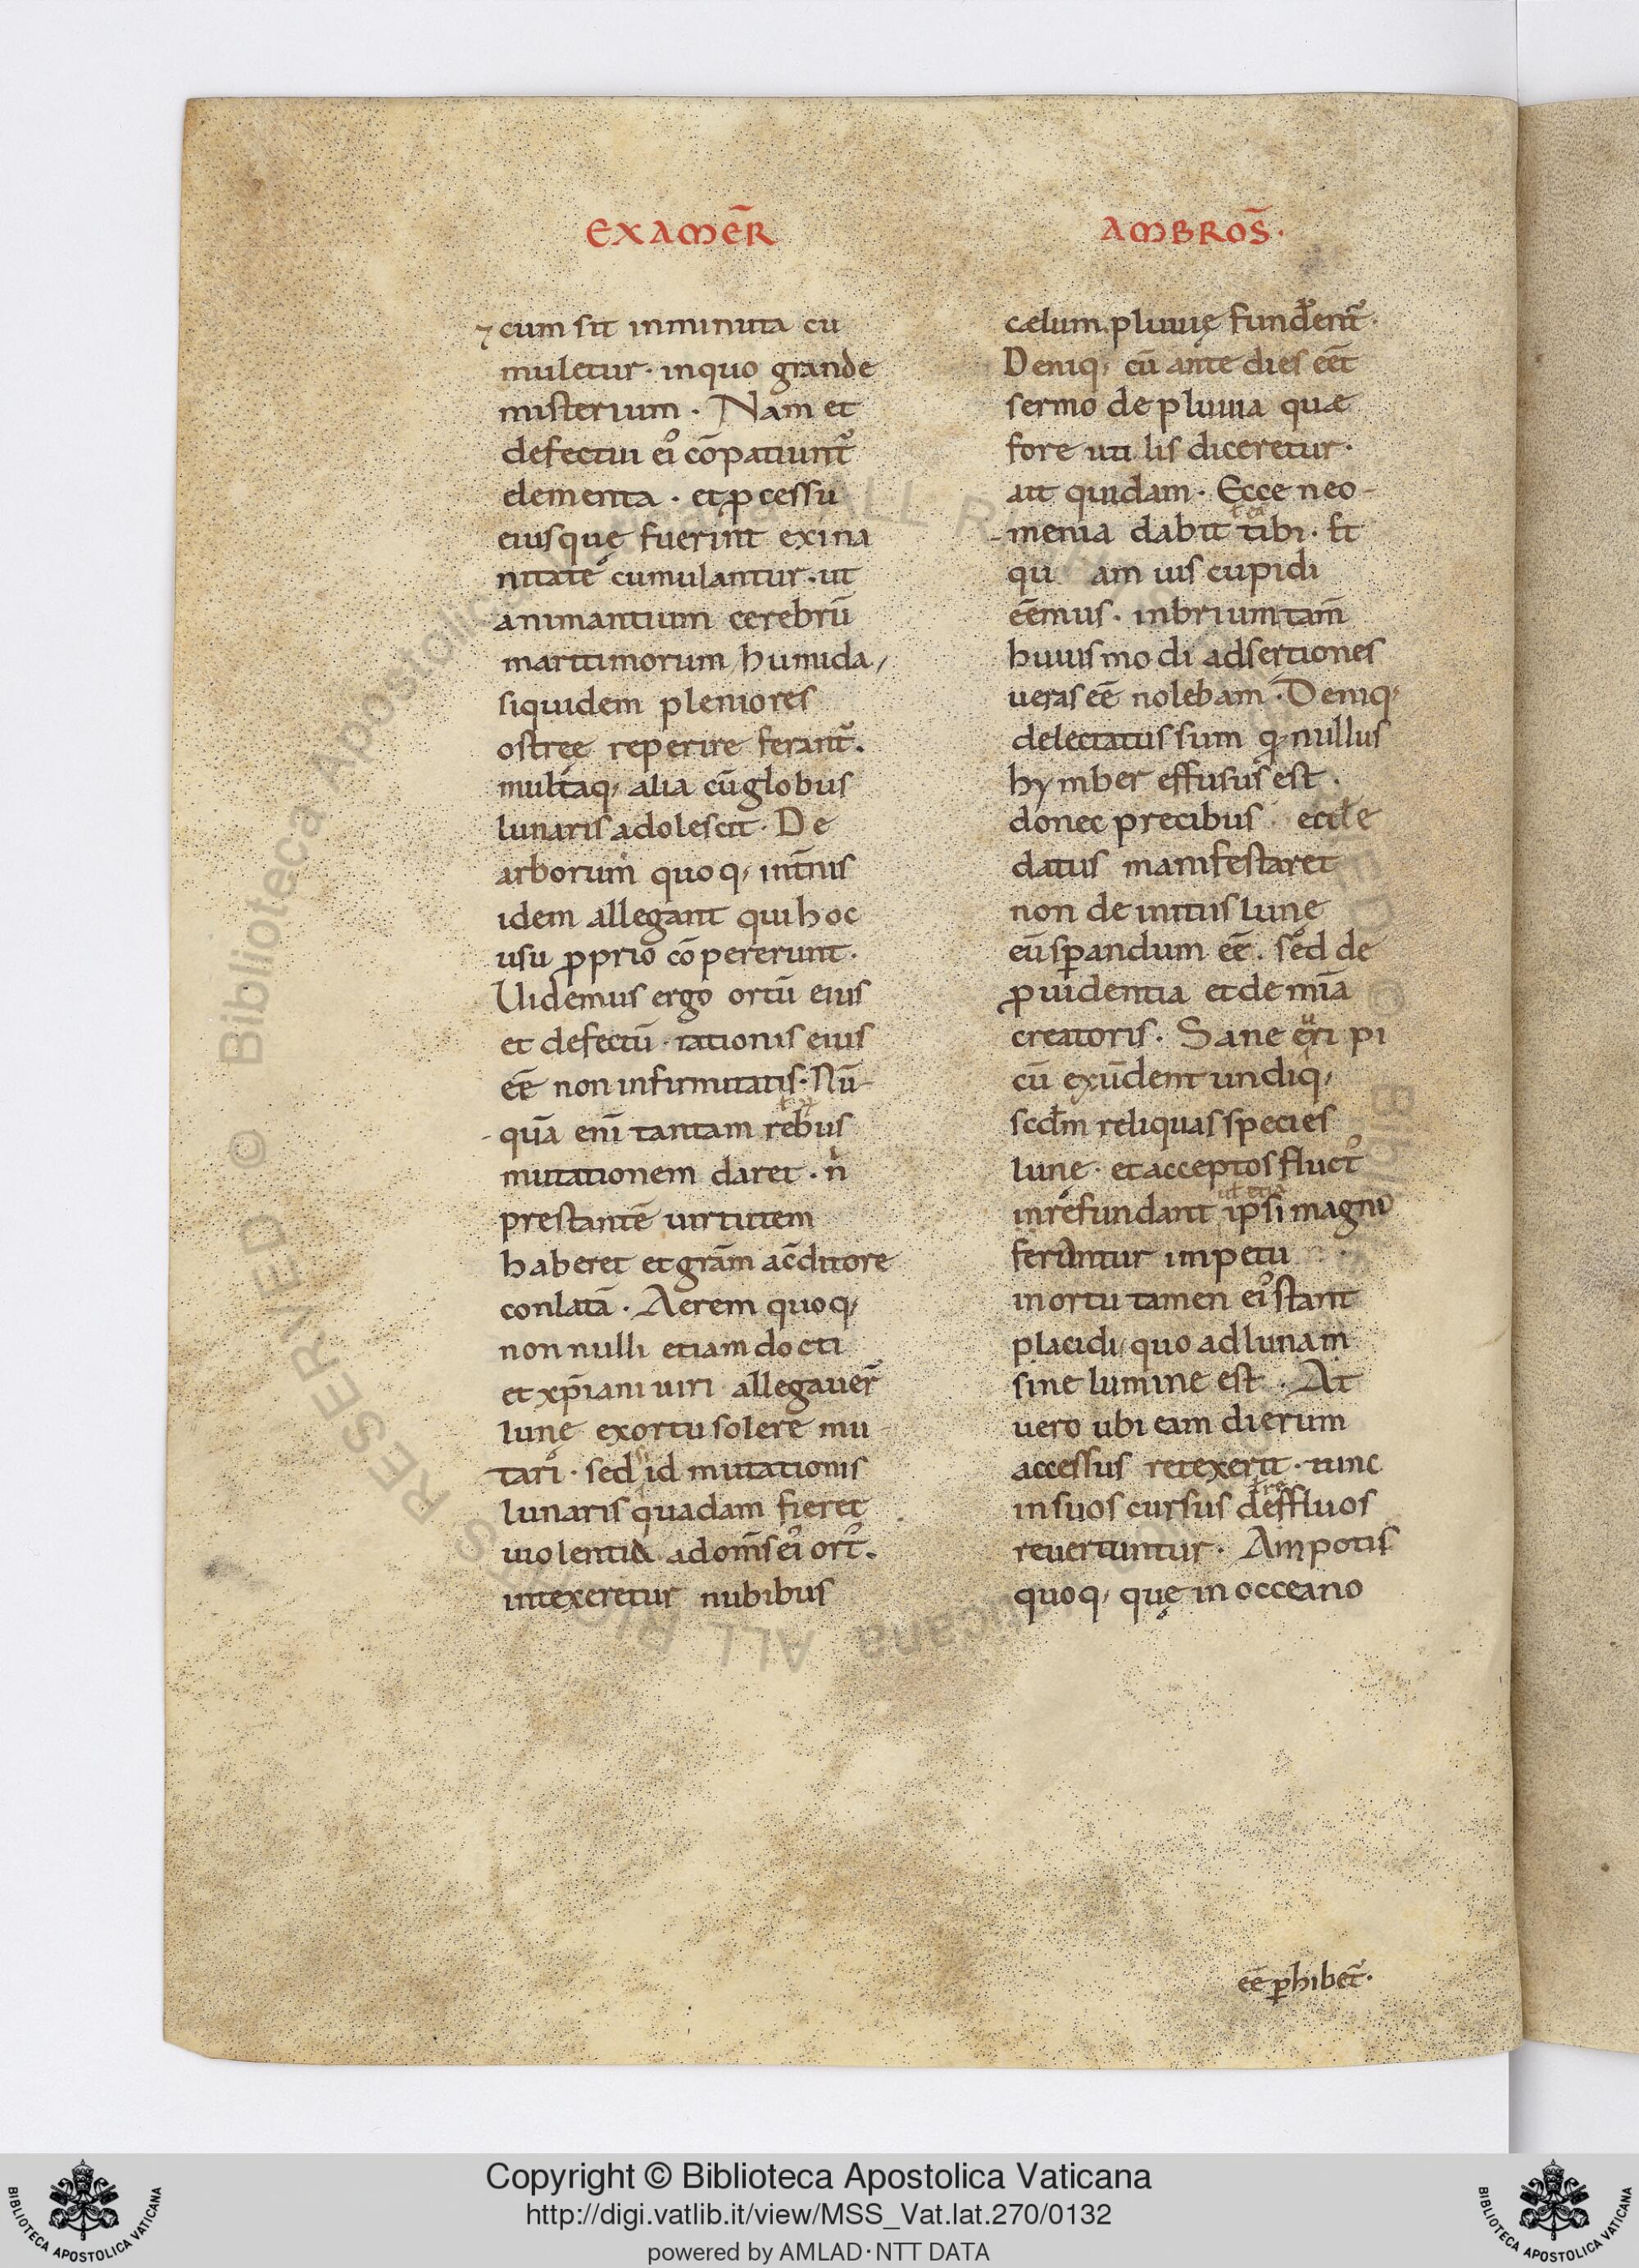 EXAMER̄
AMBROS̄·
⁊ cum sit inminuta cu
muletur· inquo grande
misterium· Nam et
defectui ei᷒ cōpatiunt᷑
elementa· et ꝓcessu
eiusque fuerint exina
nitate cumulantur· ut
animantium cerebrū
maritimorum humida,
siquidem pleniores
ostreę reperire ferant᷑.
multaq; alia cū globus
lunaris adolescit· De
arborum quoq; int̄nis
idem allegant qui hoc
usu ꝓprio cōpererunt·
Videmus ergo ortū eius
et defectū· rationis eius
eē non infirmitatis· Nū-
-quā eni̅ tantam rebus
mutationem daret· n̄
prestantē uirtutem
haberet et grām ac̄ditore
conlatā· Aerem quoq;
non nulli etiam docti
et xp̄iani uiri allegauer̄
lunę exortu solere mu
tari· sed id mutationis
lunaris quadam fieret
uiolentia adom̄s ei᷒ ort᷒.
intexeretur nubibus
cælum. pluuię funderent᷑·
Deniq; cū ante dies eēt
sermo de pluuia quæ
fore utilis diceretur·
ait quidam· Ecce neo-
-menia dabit tibi· &t
qu am uis cupidi
eēmus· inbrium tam̄
huius modi adsertiones
ueras eē nolebam· Deniq;
delectatus sum q; nullus
hymber effusus est·
donec precibus eccłe
datus manifestaret
non de initiis lune
eū sꝑandum eē. sed de
ꝓuidentia et de mīa
creatoris· Sane euri pi
cū exūdent undiq;
scdm̄ reliquas species
lunę· et acceptos fluct᷒
ut etiā
inrefundant ipsi magno
feruntur impetu
inortu tamen ei᷒ stant
placidi, quo ad lunam
sine lumine est· At
uero ubi eam dierum
accessus retexerit· tunc
insuos cursus deffluos
reuertuntur· Ampotis
quoq; quę in occeano
eē ꝓhibet᷑·
Copyright © Biblioteca Apostolica Vaticana
http://digi.vatlib.it/view/MSS_Vat.lat.270/0132
powered by AMLAD·NTT DATA
BIBLIOTECA APOSTOLICA VATICANA
BIBLIOTECA APOSTOLICA VATICANA